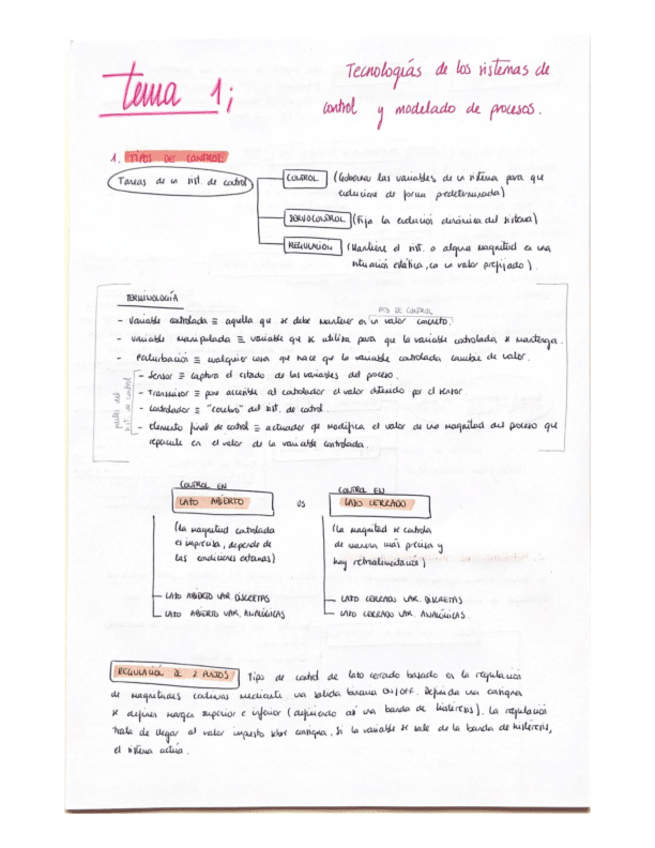 tema 1;
Tecnologías de los sistemas de
control y modelado de procesos.
1. TIPOS DE CONTROL
Tareas de un sist. de control
CONTROL (Gobernar las variables de un sistema para que
evolucione de forma predeterminada)
SERVOCONTROL (Fija la evolución dinámica del sistema)
REGULACIÓN (Mantiene el sist. o alguna magnitud en una
situación estática, en un valor prefijado).
TERMINOLOGÍA
PTO DE CONTROL
- Variable controlada ≡ aquella que se debe mantener en un valor concreto.
- Variable manipulada ≡ variable que se utiliza para que la variable controlada se mantenga.
- Perturbación ≡ cualquier cosa que hace que la variable controlada cambie de valor.
partes del
sist. de control
- Sensor ≡ captura el estado de las variables del proceso.
- Transmisor ≡ pone accesible al controlador el valor obtenido por el sensor.
- Controlador ≡ "cerebro" del sist. de control.
- Elemento final de control ≡ actuador que modifica el valor de una magnitud del proceso que
repercute en el valor de la variable controlada.
CONTROL EN
LAZO ABIERTO
vs
CONTROL EN
LAZO CERRADO
(La magnitud controlada
es imprecisa, depende de
las condiciones externas)
LAZO ABIERTO VAR. DISCRETAS
LAZO ABIERTO VAR. ANALÓGICAS
(La magnitud se controla
de manera más precisa y
hay retroalimentación)
LAZO CERRADO VAR. DISCRETAS
LAZO CERRADO VAR. ANALÓGICAS.
REGULACIÓN DE 2 PUNTOS Tipo de control de lazo cerrado basado en la regulación
de magnitudes continuas mediante una salida binaria ON/OFF. Definida una consigna
se definen margen superior e inferior (definiendo así una banda de histéresis). La regulación
trata de llegar al valor impuesto sobre consigna. Si la variable se sale de la banda de histéresis,
el sistema actúa.